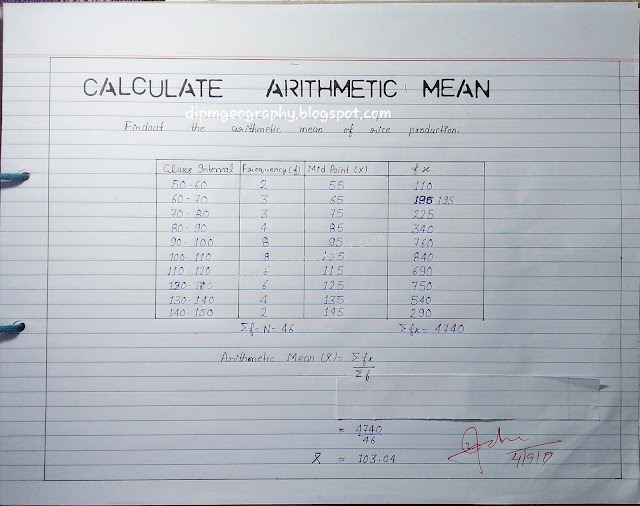 CALCULATE ARITHMETIC MEAN
dipmgeography.blogspot.com
Findout the arithmetic mean of rice production.
Class Interval Frequency (f) Mid Point (x) fx
50-60 2 55 110
60-70 3 65 195 195
70-80 3 75 225
80-90 4 85 340
90-100 8 95 760
100-110 8 105 840
110-120 6 115 690
120-130 6 125 750
130-140 4 135 540
140-150 2 145 290
Σf=N=46 Σfx=4740
Arithmetic Mean (x̄)= Σfx
Σf
= 4740
46
x̄ = 103.04
4/9/17